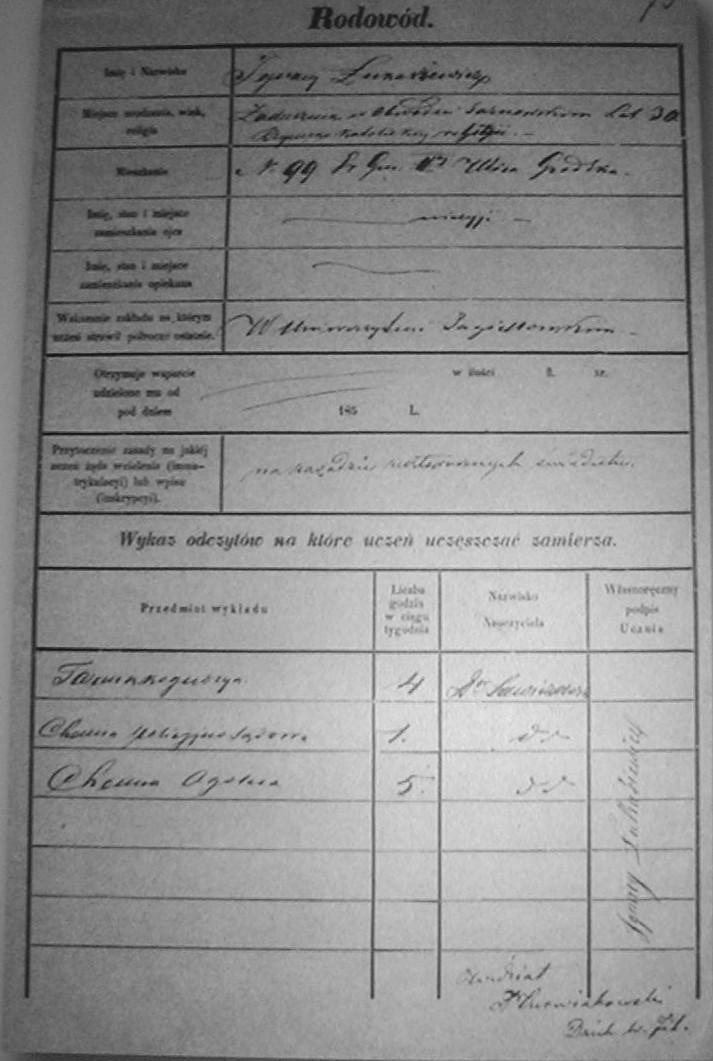 Rodowód.
Imię i Nazwisko
Ignacy Łukasiewicz
Miejsce urodzenia, wiek,
religia
Zaduszniki w Obwodzie Tarnowskim lat 30
Rzymsko Katolickiej religii. —
Mieszkanie
N. 99 Gm. Ulica Grodzka.
Imię, stan i miejsce
zamieszkania ojca
nieżyje —
Imię, stan i miejsce
zamieszkania opiekuna
Wskazanie zakładu na którym
uczeń strawił półrocze ostatnie.
W Uniwersytecie Jagiellońskim —
Otrzymuje wsparcie
udzielone mu od
pod dniem
w ilości fl. xr.
185 L.
Przytoczenie zasady na jakiéj
uczeń żąda wcielenia (imma-
trykulacyi) lub wpisu
(inskrypcyi).
na zasadzie świadectw.
Wykaz odczytów na które uczeń uczęszczać zamierza.
Przedmiot wykładu
Liczba
godzin
w ciągu
tygodnia
Nazwisko
Nauczyciela
Własnoręczny
podpis
Ucznia
Farmakognozya 4 Dr
Chemia policyjno sądowa 1. dd
Chemia Ogólna 5. dd
Ignacy Łukasiewicz
Dziek. w. fil.